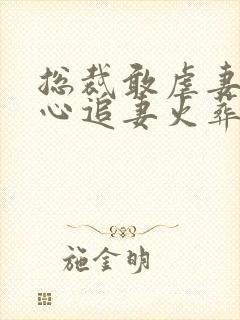 总裁敢虐妻
心追妻火葬
施金明